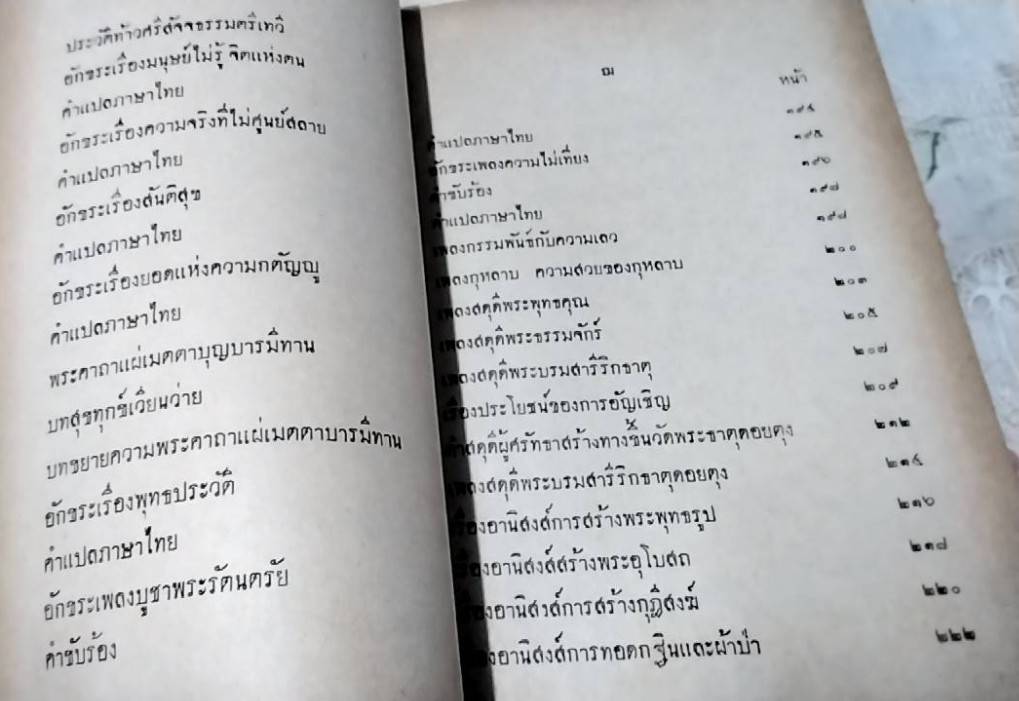 ประวัติท้าวศรีสัจจธรรมตรีเทวี
อักขระเรื่องมนุษย์ไม่รู้จิตแห่งตน
คำแปลภาษาไทย
อักขระเรื่องความจริงที่ไม่ศูนย์สลาย
คำแปลภาษาไทย
อักขระเรื่องสันติสุข
คำแปลภาษาไทย
อักขระเรื่องยอดแห่งความกตัญญู
คำแปลภาษาไทย
พระคาถาแผ่เมตตาบุญบารมีทาน
บทสุขทุกข์เวียนว่าย
บทขยายความพระคาถาแผ่เมตตาบารมีทาน
อักขระเรื่องพุทธประวัติ
คำแปลภาษาไทย
อักขระเพลงบูชาพระรัตนตรัย
คำขับร้อง
ฌ
หน้า
คำแปลภาษาไทย ๑๙๔
อักขระเพลงความไม่เที่ยง ๑๙๕
คำขับร้อง ๑๙๖
คำแปลภาษาไทย ๑๙๗
เพลงกรรมพันธ์กับความเลว ๑๙๗
เพลงกุหลาบ ความสวยของกุหลาบ ๒๐๐
เพลงสดุดีพระพุทธคุณ ๒๐๓
เพลงสดุดีพระธรรมจักร์ ๒๐๕
เพลงสดุดีพระบรมสารีริกธาตุ ๒๐๗
เรื่องประโยชน์ของการอัญเชิญ ๒๐๙
คำสดุดีผู้ศรัทธาสร้างทางขึ้นวัดพระธาตุดอยตุง ๒๑๒
เพลงสดุดีพระบรมสารีริกธาตุดอยตุง ๒๑๔
เรื่องอานิสงส์การสร้างพระพุทธรูป ๒๑๖
เรื่องอานิสงส์สร้างพระอุโบสถ ๒๑๘
เรื่องอานิสงส์การสร้างกุฏีสงฆ์ ๒๒๐
เรื่องอานิสงส์การทอดกฐินและผ้าป่า ๒๒๒